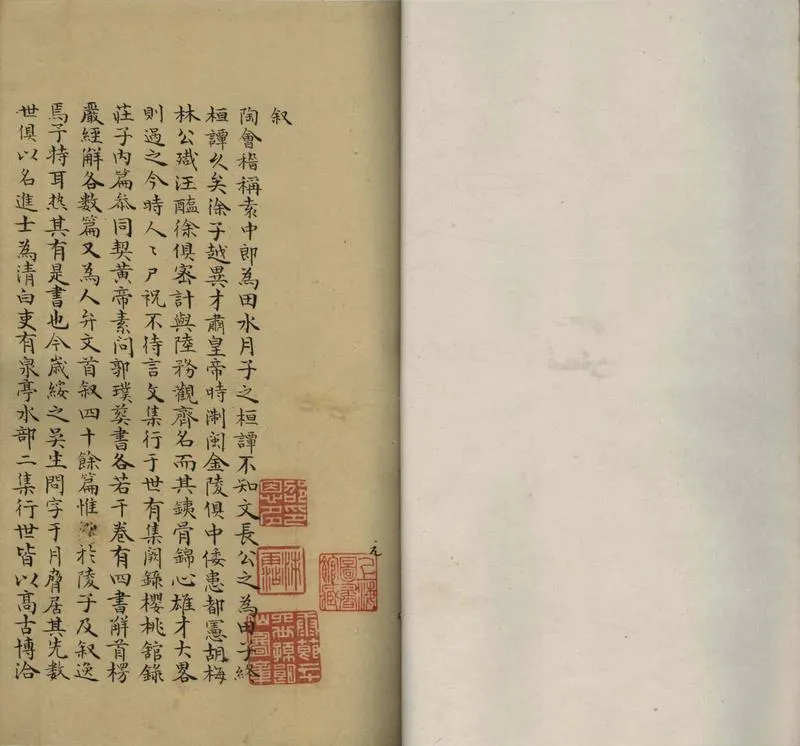 叙
陶會稽稱袁中郎為田水月子之桓譚不知文長公之為田子終
桓譚久矣徐子越異才肅皇帝時淛閩金陵俱中倭患都憲胡梅
林公殱汪醢徐俱密計與陸務觀齊名而其銕骨錦心雄才大畧
則過之今時人〻尸祝不待言文集行于世有集闕錄櫻桃舘錄
莊子内篇叅同契黃帝素問郭璞塟書各若干卷有四書解首楞
嚴經解各數篇又為人弁文首叙四十餘篇惟於陵子及叙逸
焉予特耳热其有是書也今歲綏之吳生問字于月脅居其先數
世俱以名進士為清白吏有泉亭水部二集行世皆以髙古博洽
上海圖書館藏